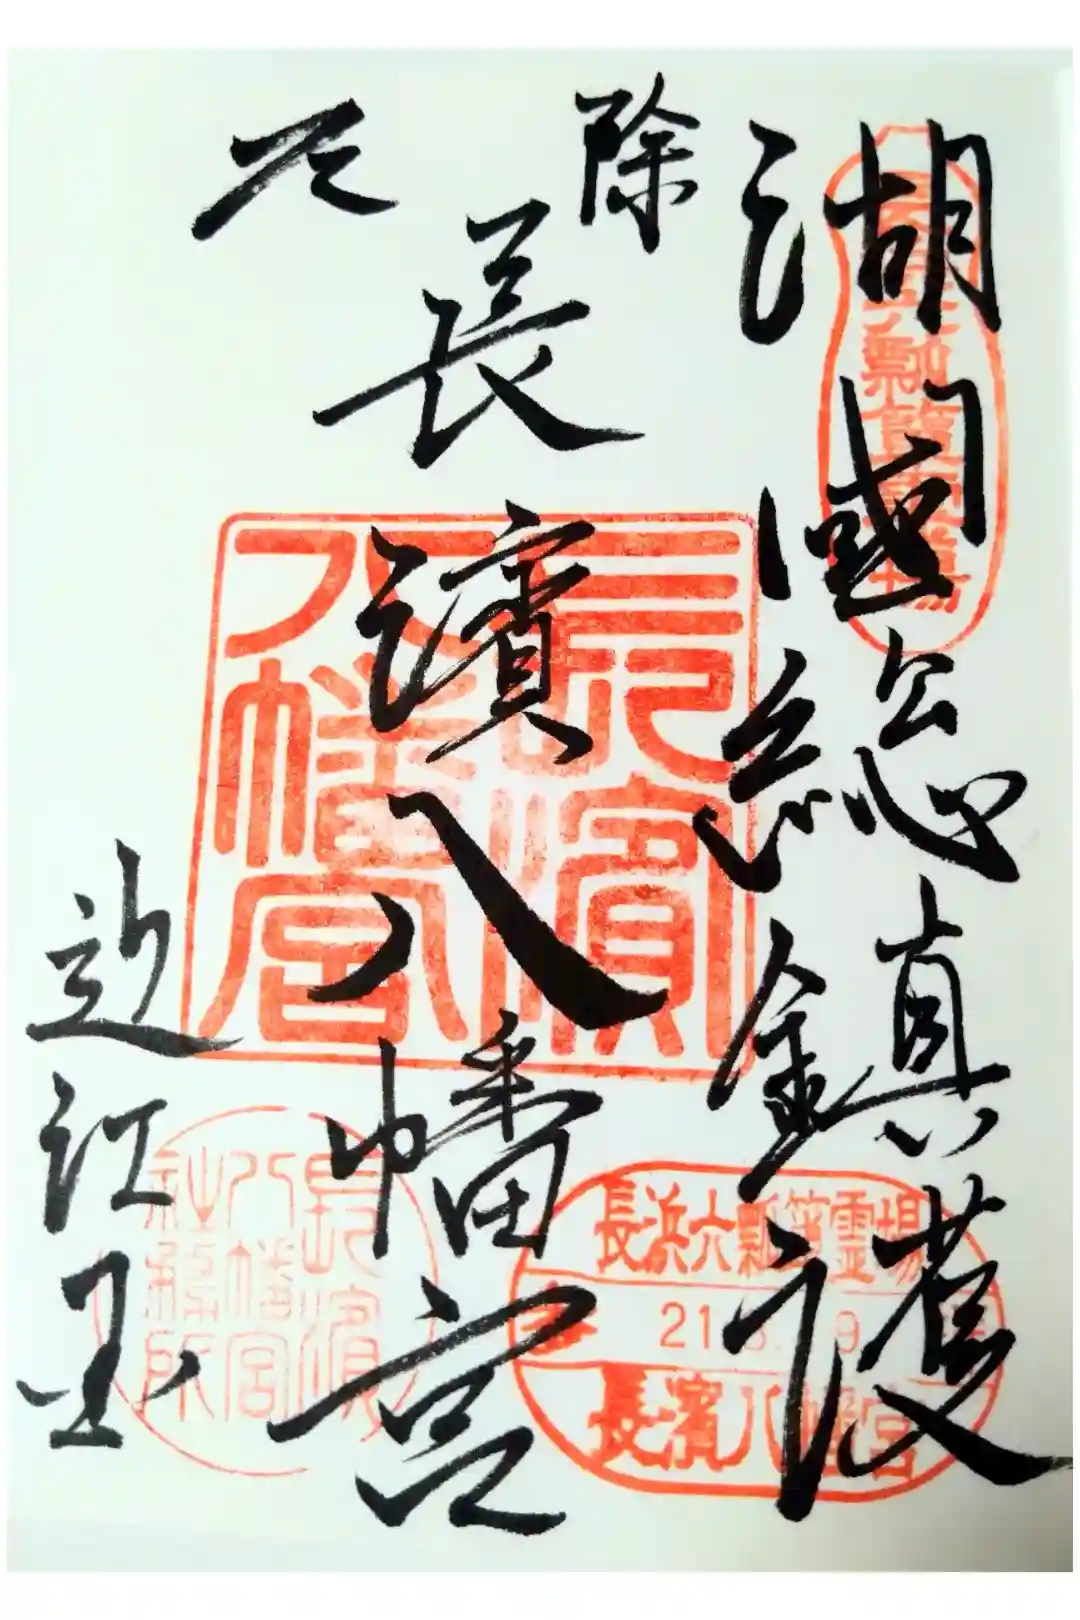 湖國總鎮護
厄除
長濱八幡宮
近江
長濱八幡宮
長浜六瓢箪霊場
21
長濱八幡宮
長濱八幡宮社務所